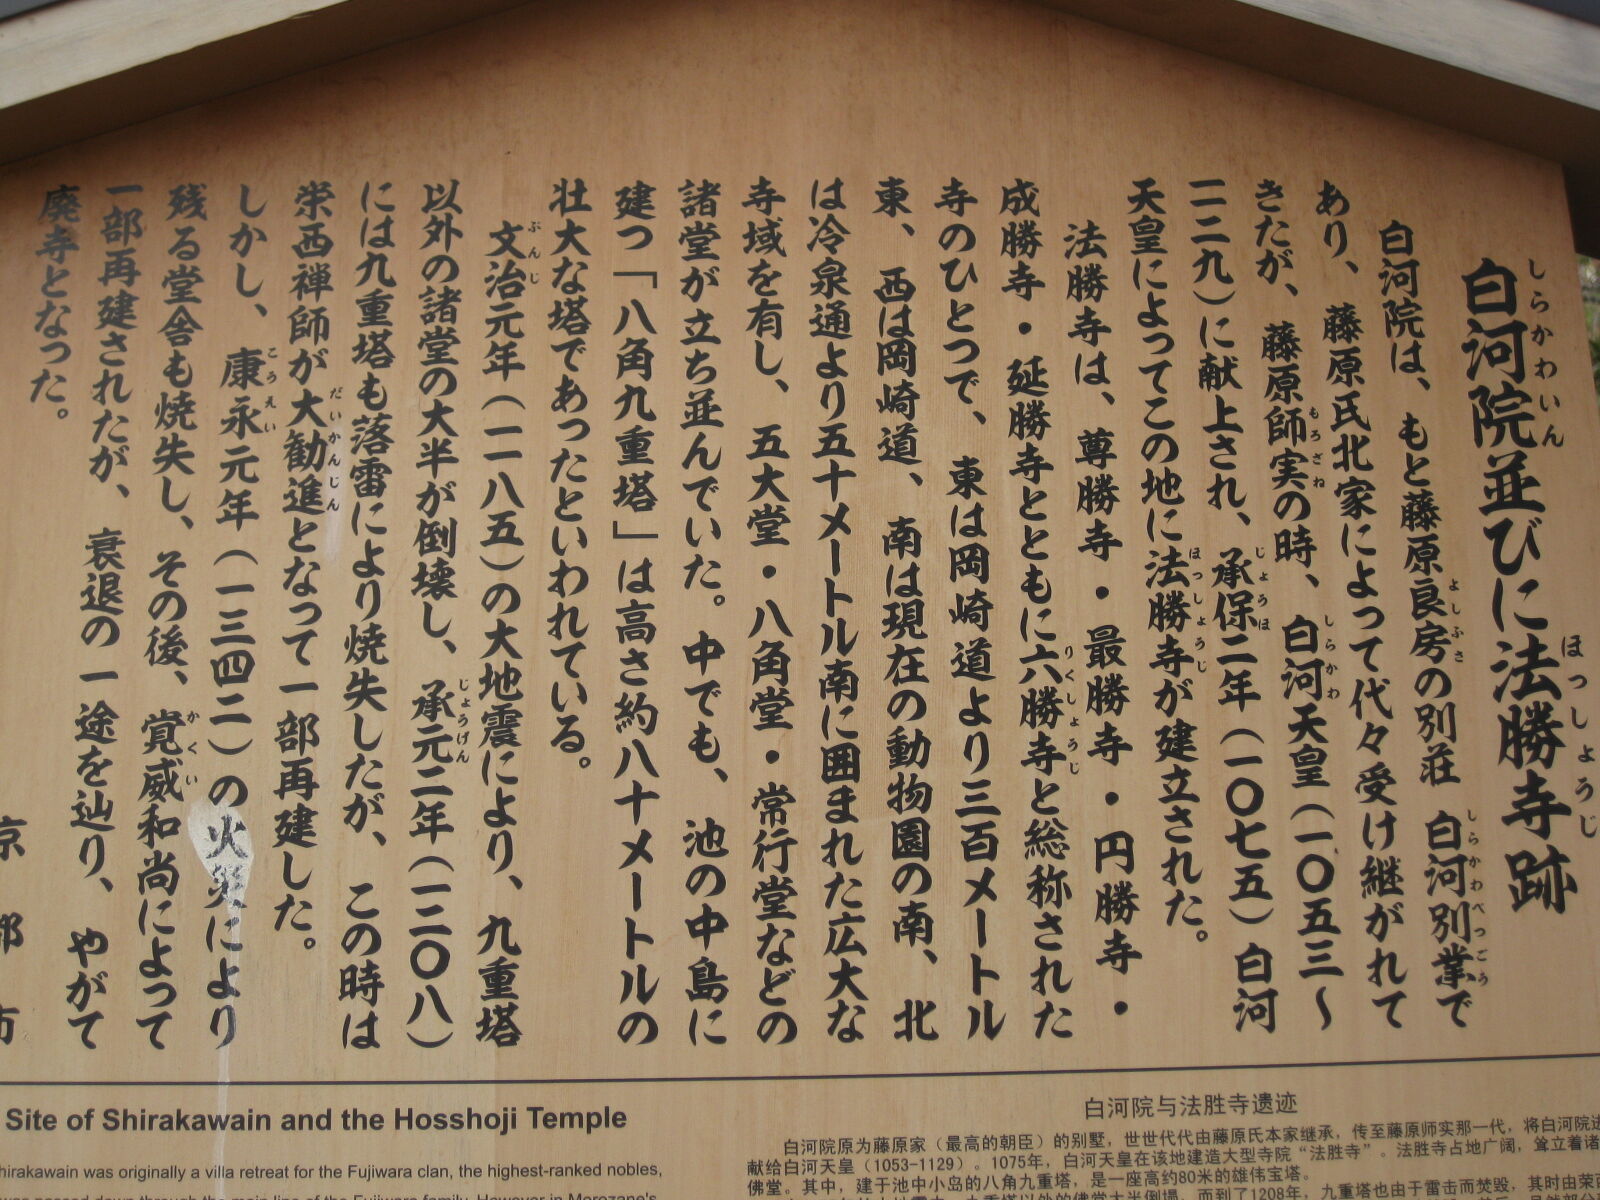 白河院並びに法勝寺跡
しらかわいん
ほっしょうじ
白河院は、もと藤原良房の別荘 白河別業で
よしふさ
しらかわべつごう
あり、藤原氏北家によって代々受け継がれて
きたが、藤原師実の時、白河天皇(一〇五三〜
もろざね
しらかわ
一一二九)に献上され、承保二年(一〇七五)白河
じょうほ
天皇によってこの地に法勝寺が建立された。
ほっしょうじ
法勝寺は、尊勝寺・最勝寺・円勝寺・
成勝寺・延勝寺とともに六勝寺と総称された
りくしょうじ
寺のひとつで、東は岡崎道より三百メートル
東、西は岡崎道、南は現在の動物園の南、北
は冷泉通より五十メートル南に囲まれた広大な
寺域を有し、五大堂・八角堂・常行堂などの
諸堂が立ち並んでいた。中でも、池の中島に
建つ「八角九重塔」は高さ約八十メートルの
壮大な塔であったといわれている。
文治元年(一一八五)の大地震により、九重塔
ぶんじ
以外の諸堂の大半が倒壊し、承元二年(一二〇八)
じょうげん
には九重塔も落雷により焼失したが、この時は
栄西禅師が大勧進となって一部再建した。
だいかんじん
しかし、康永元年(一三四二)の火災により
こうえい
残る堂舎も焼失し、その後、覚威和尚によって
かくい
一部再建されたが、衰退の一途を辿り、やがて
廃寺となった。
京都市
Site of Shirakawain and the Hosshoji Temple
hirakawain was originally a villa retreat for the Fujiwara clan, the highest-ranked nobles,
was passed down through the main line of the Fujiwara family. However in Morozane's
白河院与法胜寺遗迹
白河院原为藤原家(最高的朝臣)的别墅,世世代代由藤原氏本家继承,传至藤原师实那一代,将白河院进
献给白河天皇(1053-1129)。1075年,白河天皇在该地建造大型寺院“法胜寺”。法胜寺占地广阔,耸立着诸
佛堂。其中,建于池中小岛的八角九重塔,是一座高约80米的雄伟宝塔。
九重塔以外的佛堂大半倒塌,而到了1208年,九重塔也由于雷击而焚毁,其时由荣西